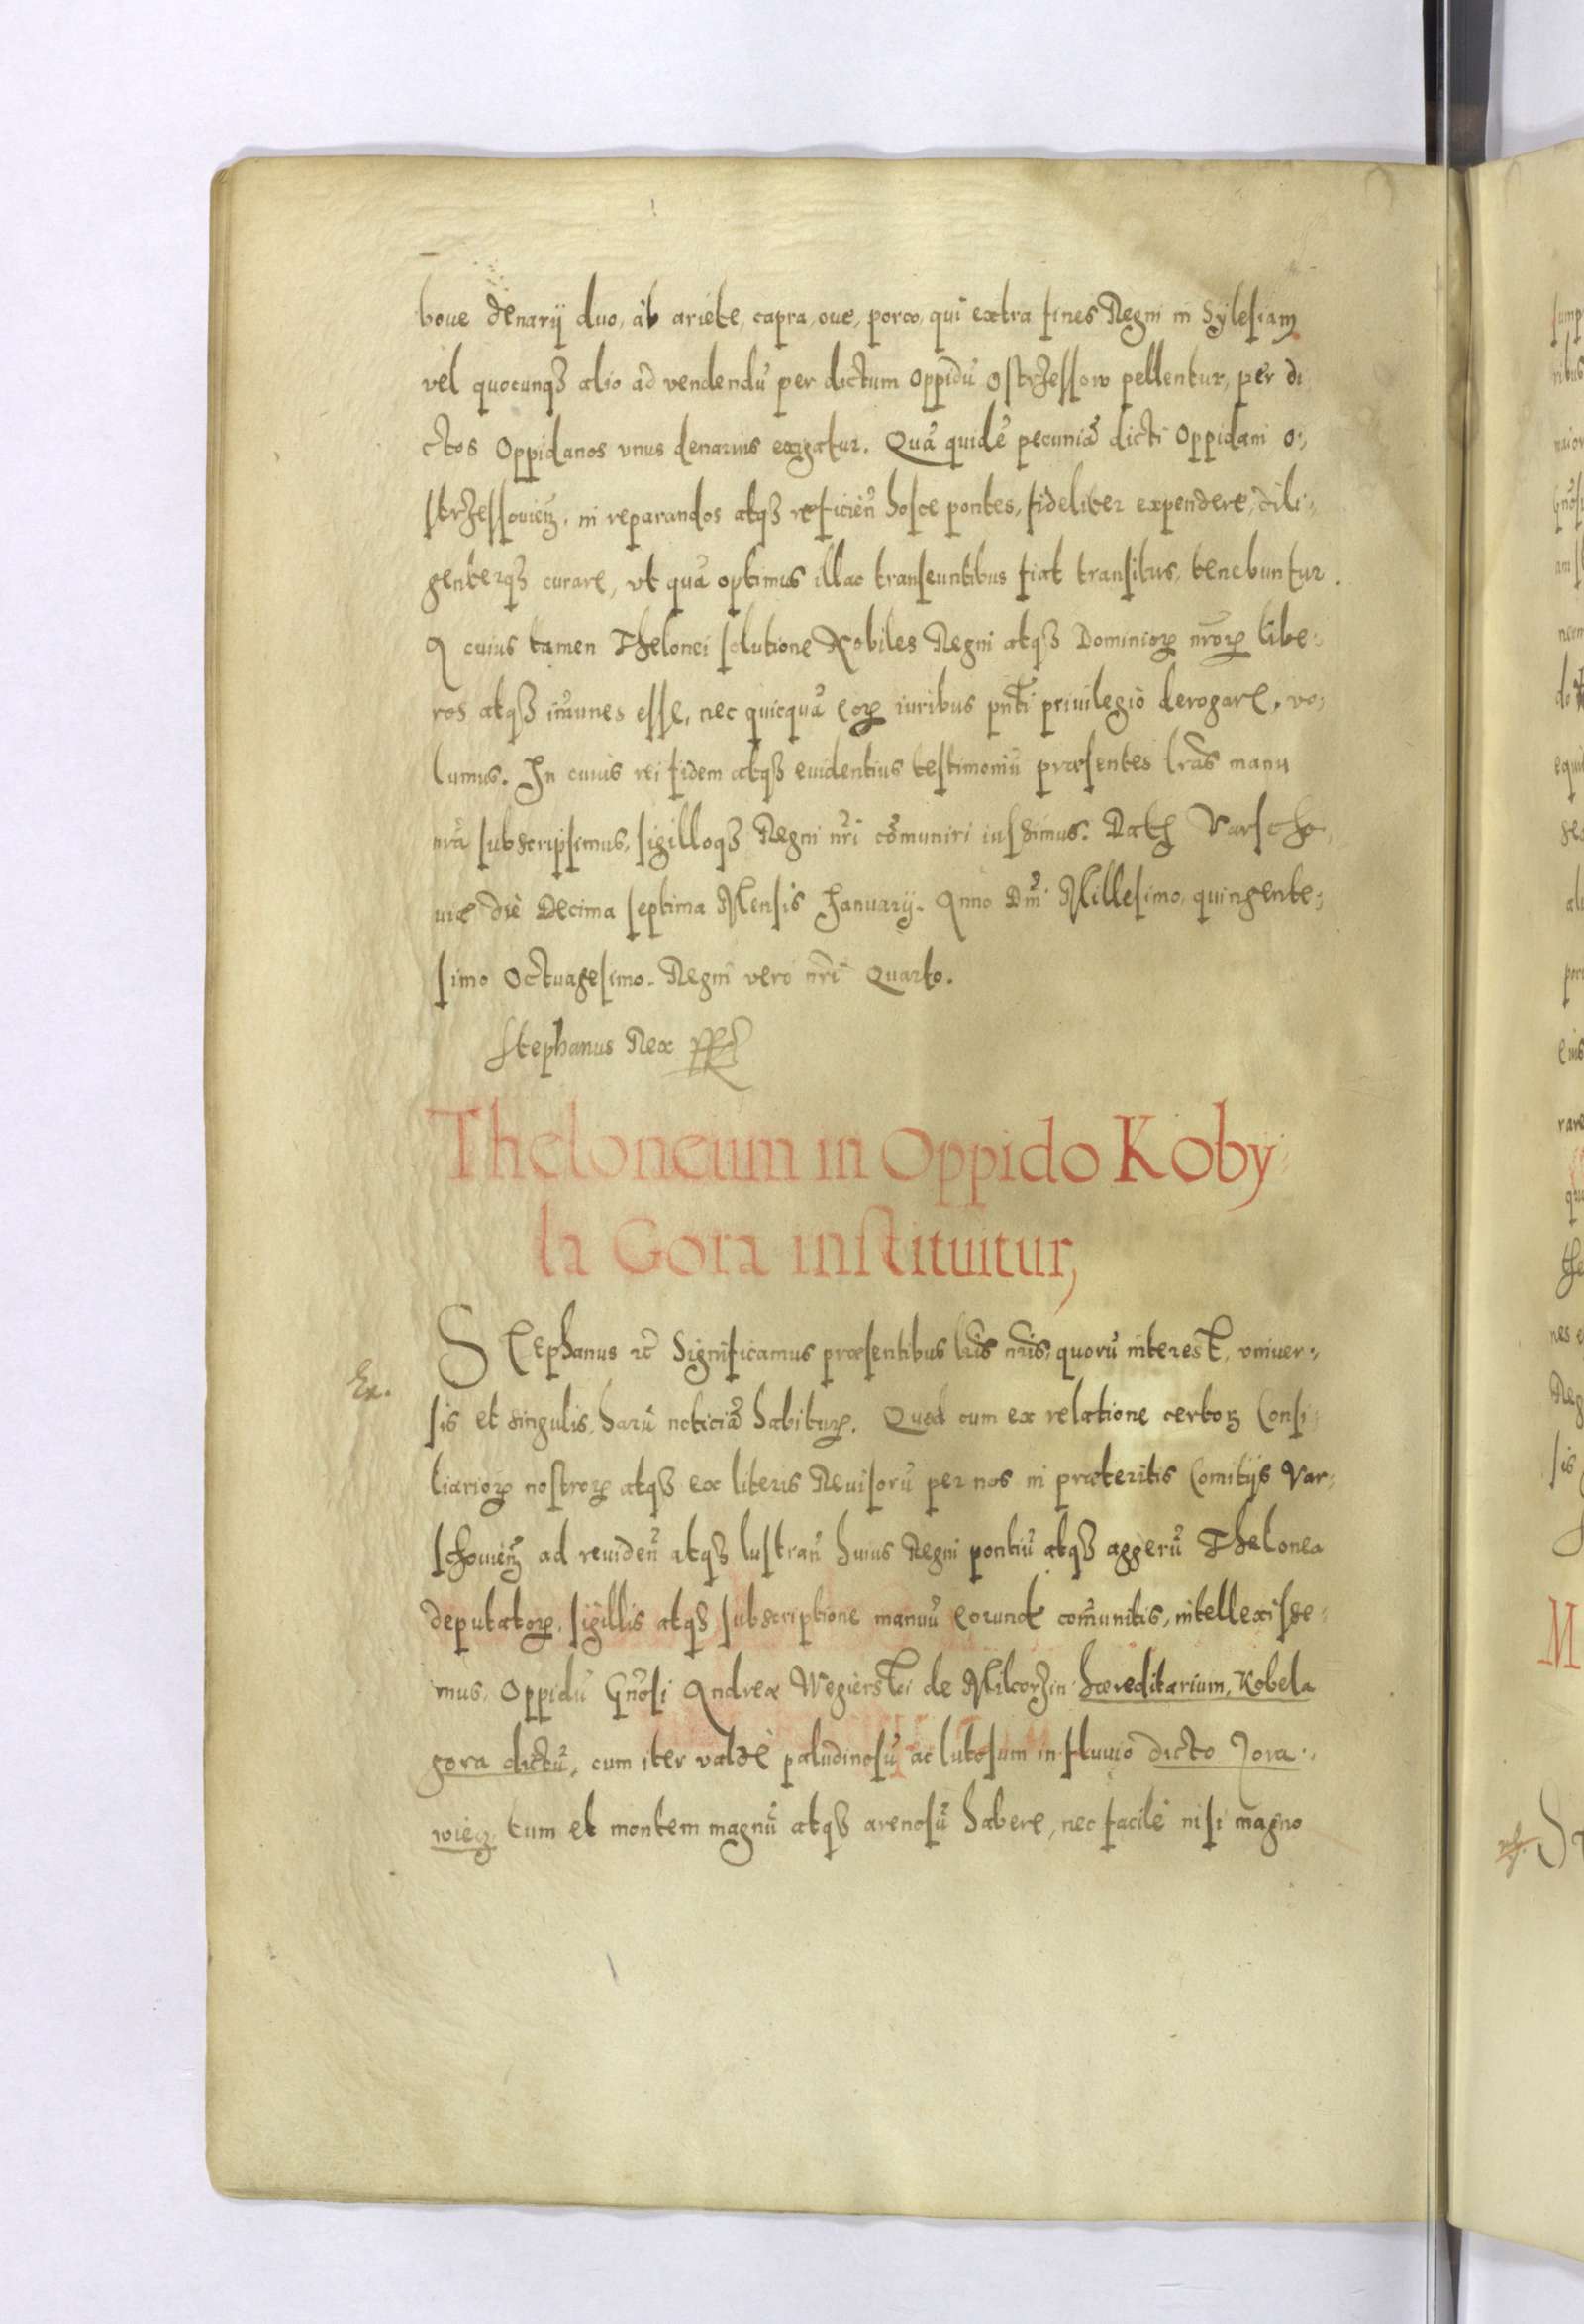 boue denarij duo, ab ariete, capra, oue, porco, qui extra fines Regni in Sylesiam
vel quocunqꝫ alio ad vendendũ per dictum Oppidũ Ostrzessow pellentur, per di
ctos Oppidanos vnus denarius exigatur. Quã quidẽ pecuniã dicti Oppidani O:
strzessouieñ, in reparandos atqꝫ reficieñ hosce pontes, fideliter expendere, dili:
genterqꝫ curare, vt quã optimus illac transeuntibus fiat transitus, tenebuntur.
A cuius tamen Thelonei solutione Nobiles Regni atqꝫ Dominioꝝ nr̃oꝝ libe:
ros atqꝫ im̃unes esse, nec quicquã eoꝝ iuribus pñti priuilegio derogare, vo:
lumus. In cuius rei fidem atqꝫ euidentius testimoniũ præsentes lr̃as manu
nr̃a subscripsimus, sigilloqꝫ Regni nr̃i cõmuniri iussimus. Datꝭ Varscho:
uiæ die Decima septima Mensis Januarij. Anno Dñi Millesimo, quingente:
simo Octuagesimo. Regni vero nr̃i Quarto.
Stephanus Rex
Theloneum in Oppido Koby:
la Gora instituitur,
Ex.
Stephanus ꝛc̃ Significamus præsentibus lr̃is nr̃is, quorũ interest, vniuer:
sis et singulis, harũ noticiã habituꝝ. Quod cum ex relatione certoꝝ Consi:
liarioꝝ nostroꝝ atqꝫ ex literis Reuisorũ per nos in præteritis Comitijs Var:
schouieñ ad reuideñ atqꝫ lustrañ huius Regni pontiũ atqꝫ aggerũ Thelonea
deputatoꝝ, sigillis atqꝫ subscriptione manuũ eorundẽ com̃unitis, intellexisse:
mus, Oppidũ Gñosi Andreæ Wegierski de Milcorzin hæreditarium, Kobela
gora dictũ, cum iter valdè paludinosũ ac lutosum in fluuio dicto Jora:
wiecz, tum et montem magnũ atqꝫ arenosũ habere, nec facilè nisi magno